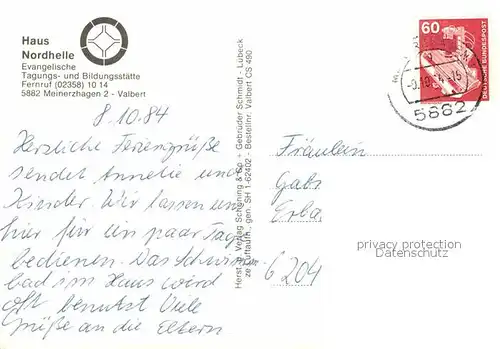 Haus
Nordhelle
Evangelische
Tagungs- und Bildungsstätte
Fernruf (02358) 10 14
5882 Meinerzhagen 2 - Valbert
8.10.84
Herzliche Feriengrüße
sendet Annelie und
Kinder. Wir lassen uns
hier für ein paar Tage
bedienen. Das Schwimm-
bad im Haus wird
oft benutzt Viele
Grüße an die Eltern
Herst. u. Verlag Schöning & Co + Gebrüder Schmidt - Lübeck
gen. SH 1-62402 - Bestellnr. Valbert CS 490
60
DEUTSCHE BUNDESPOST
5882
Fräulein
Gabi
Erba
6204
privacy protection
Datenschutz